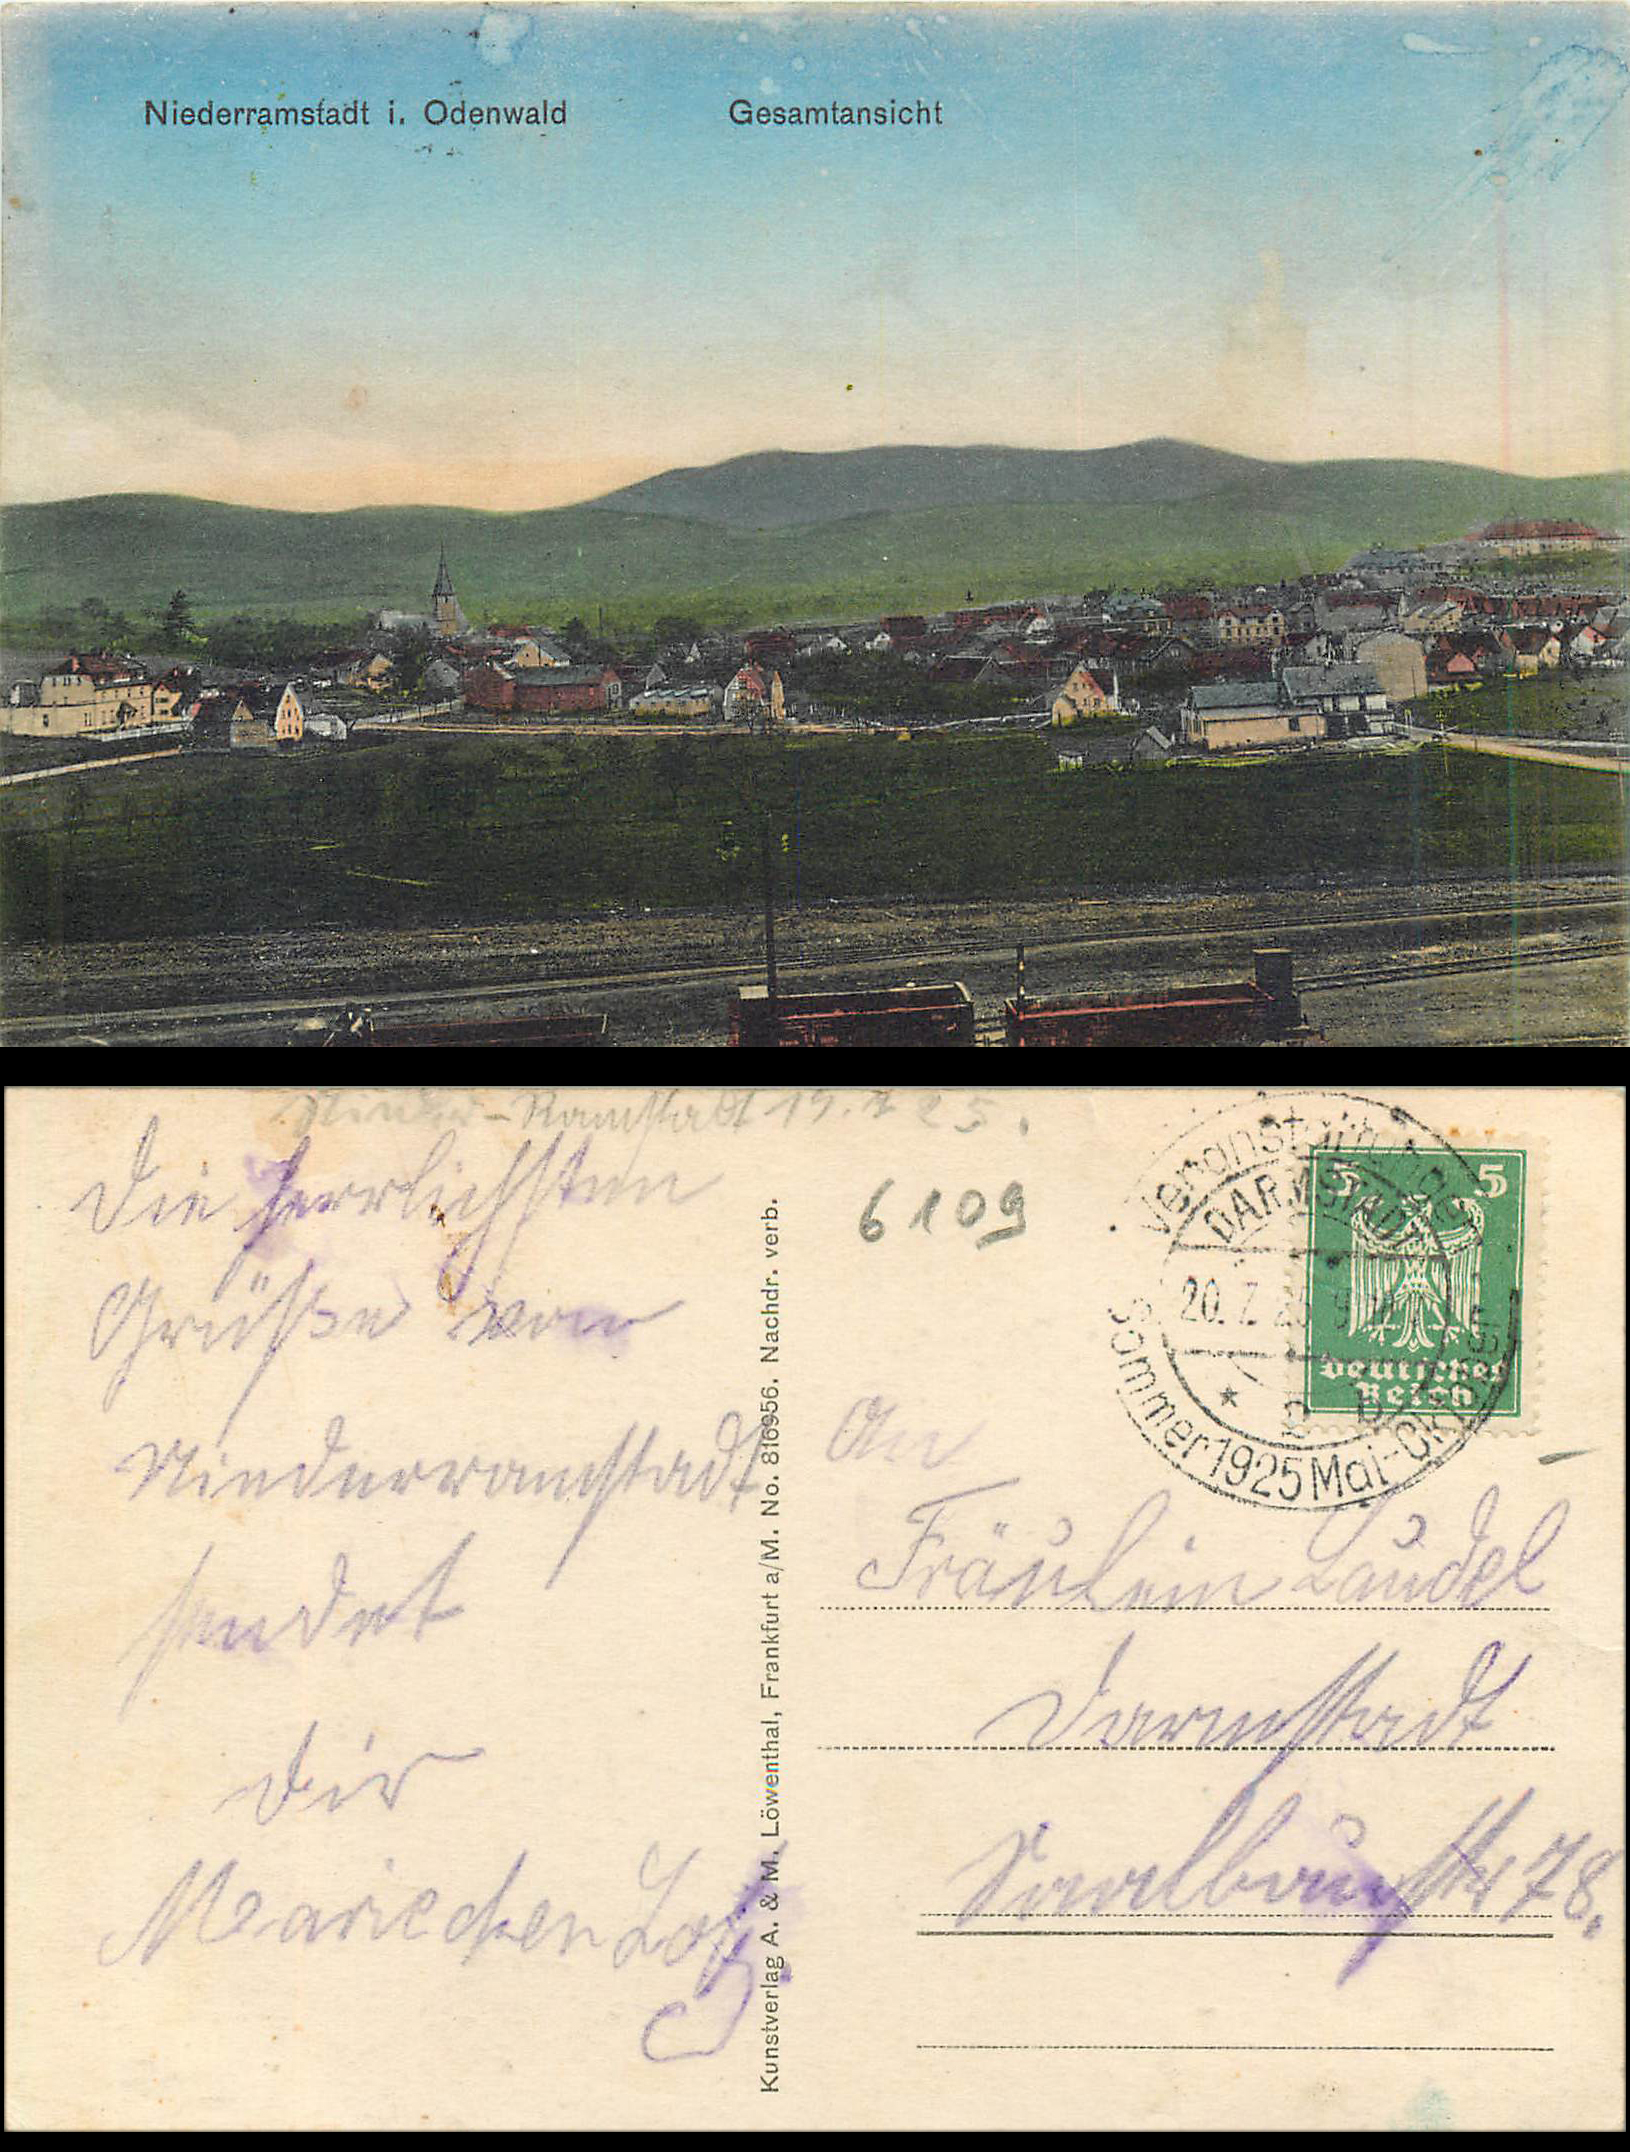 Niederramstadt i. Odenwald Gesamtansicht
Nieder-Ramstadt 19.7.25.
Die herrlichsten
Grüße von
Niederramstadt
sendet
Dir
Mariechen
Kunstverlag A. & M. Löwenthal, Frankfurt a/M. No. 816956. Nachdr. verb.
6109
Veranstaltungen
DARMSTADT
20.7.25
* 2 *
Sommer 1925 Mai-Oktober
5 5
Deutsches
Reich
An
Fräulein Laudel
Darmstadt
Saalbaustr 78.